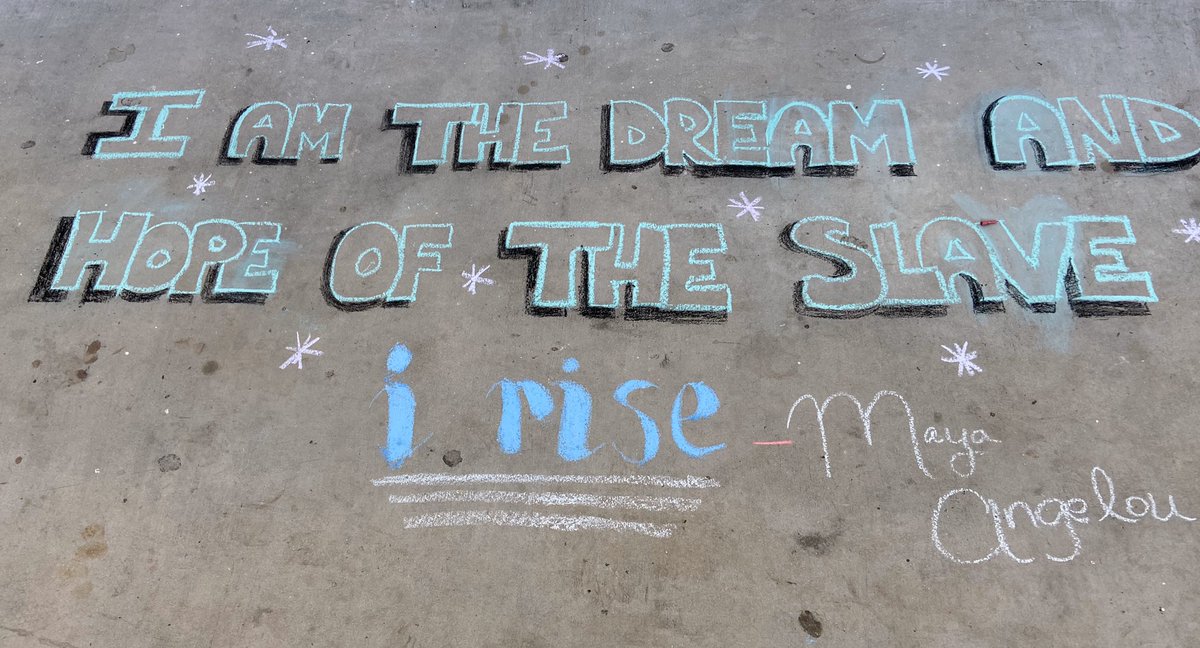 I AM THE DREAM AND
HOPE OF THE SLAVE
i rise - Maya
Angelou